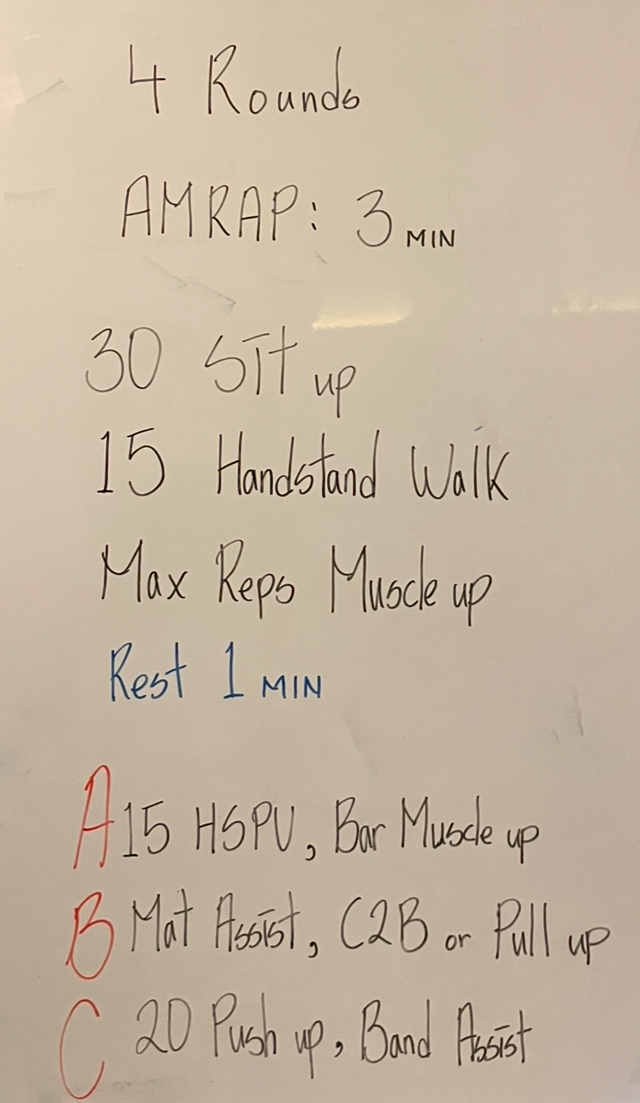 4 Rounds
AMRAP: 3 MIN
30 Sit up
15 Handstand Walk
Max Reps Muscle up
Rest 1 MIN
A 15 HSPU, Bar Muscle up
B Mat Assist, C2B or Pull up
C 20 Push up, Band Assist